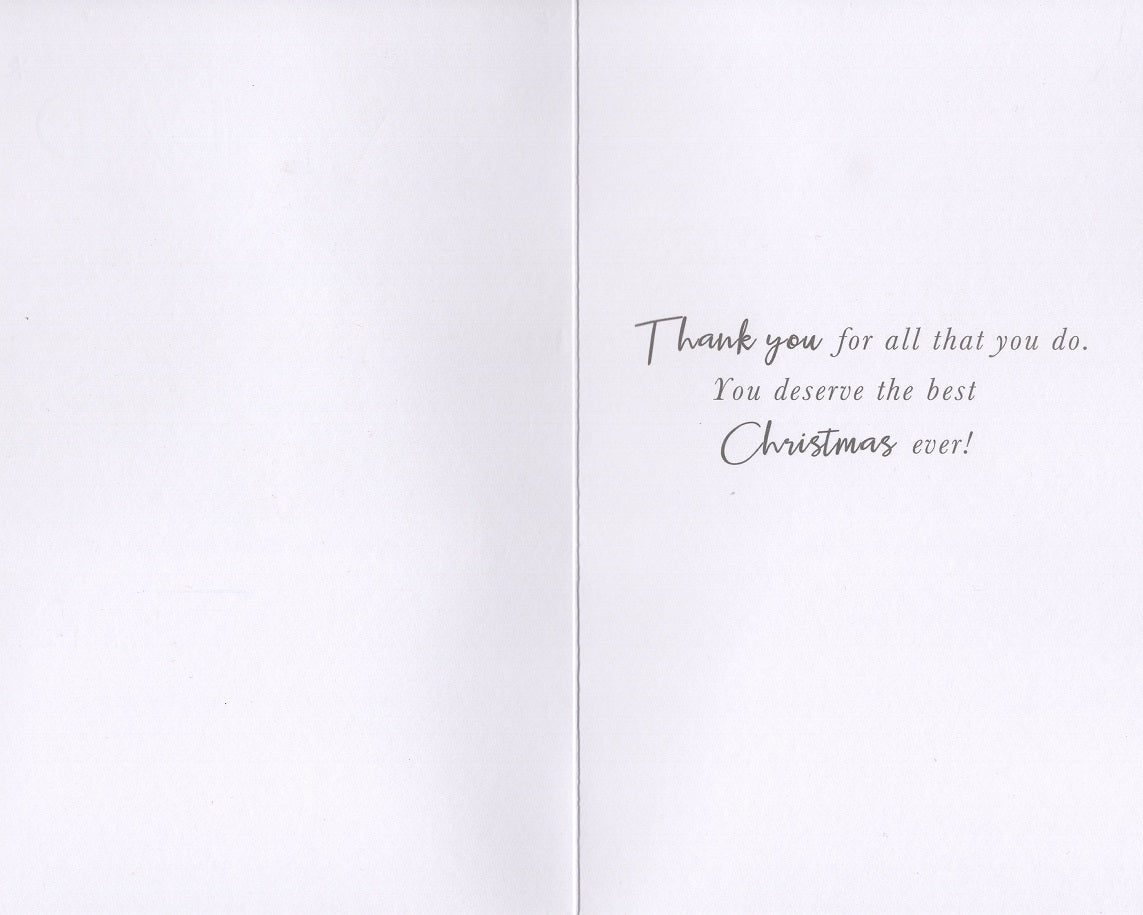 Thank you for all that you do.
You deserve the best
Christmas ever!